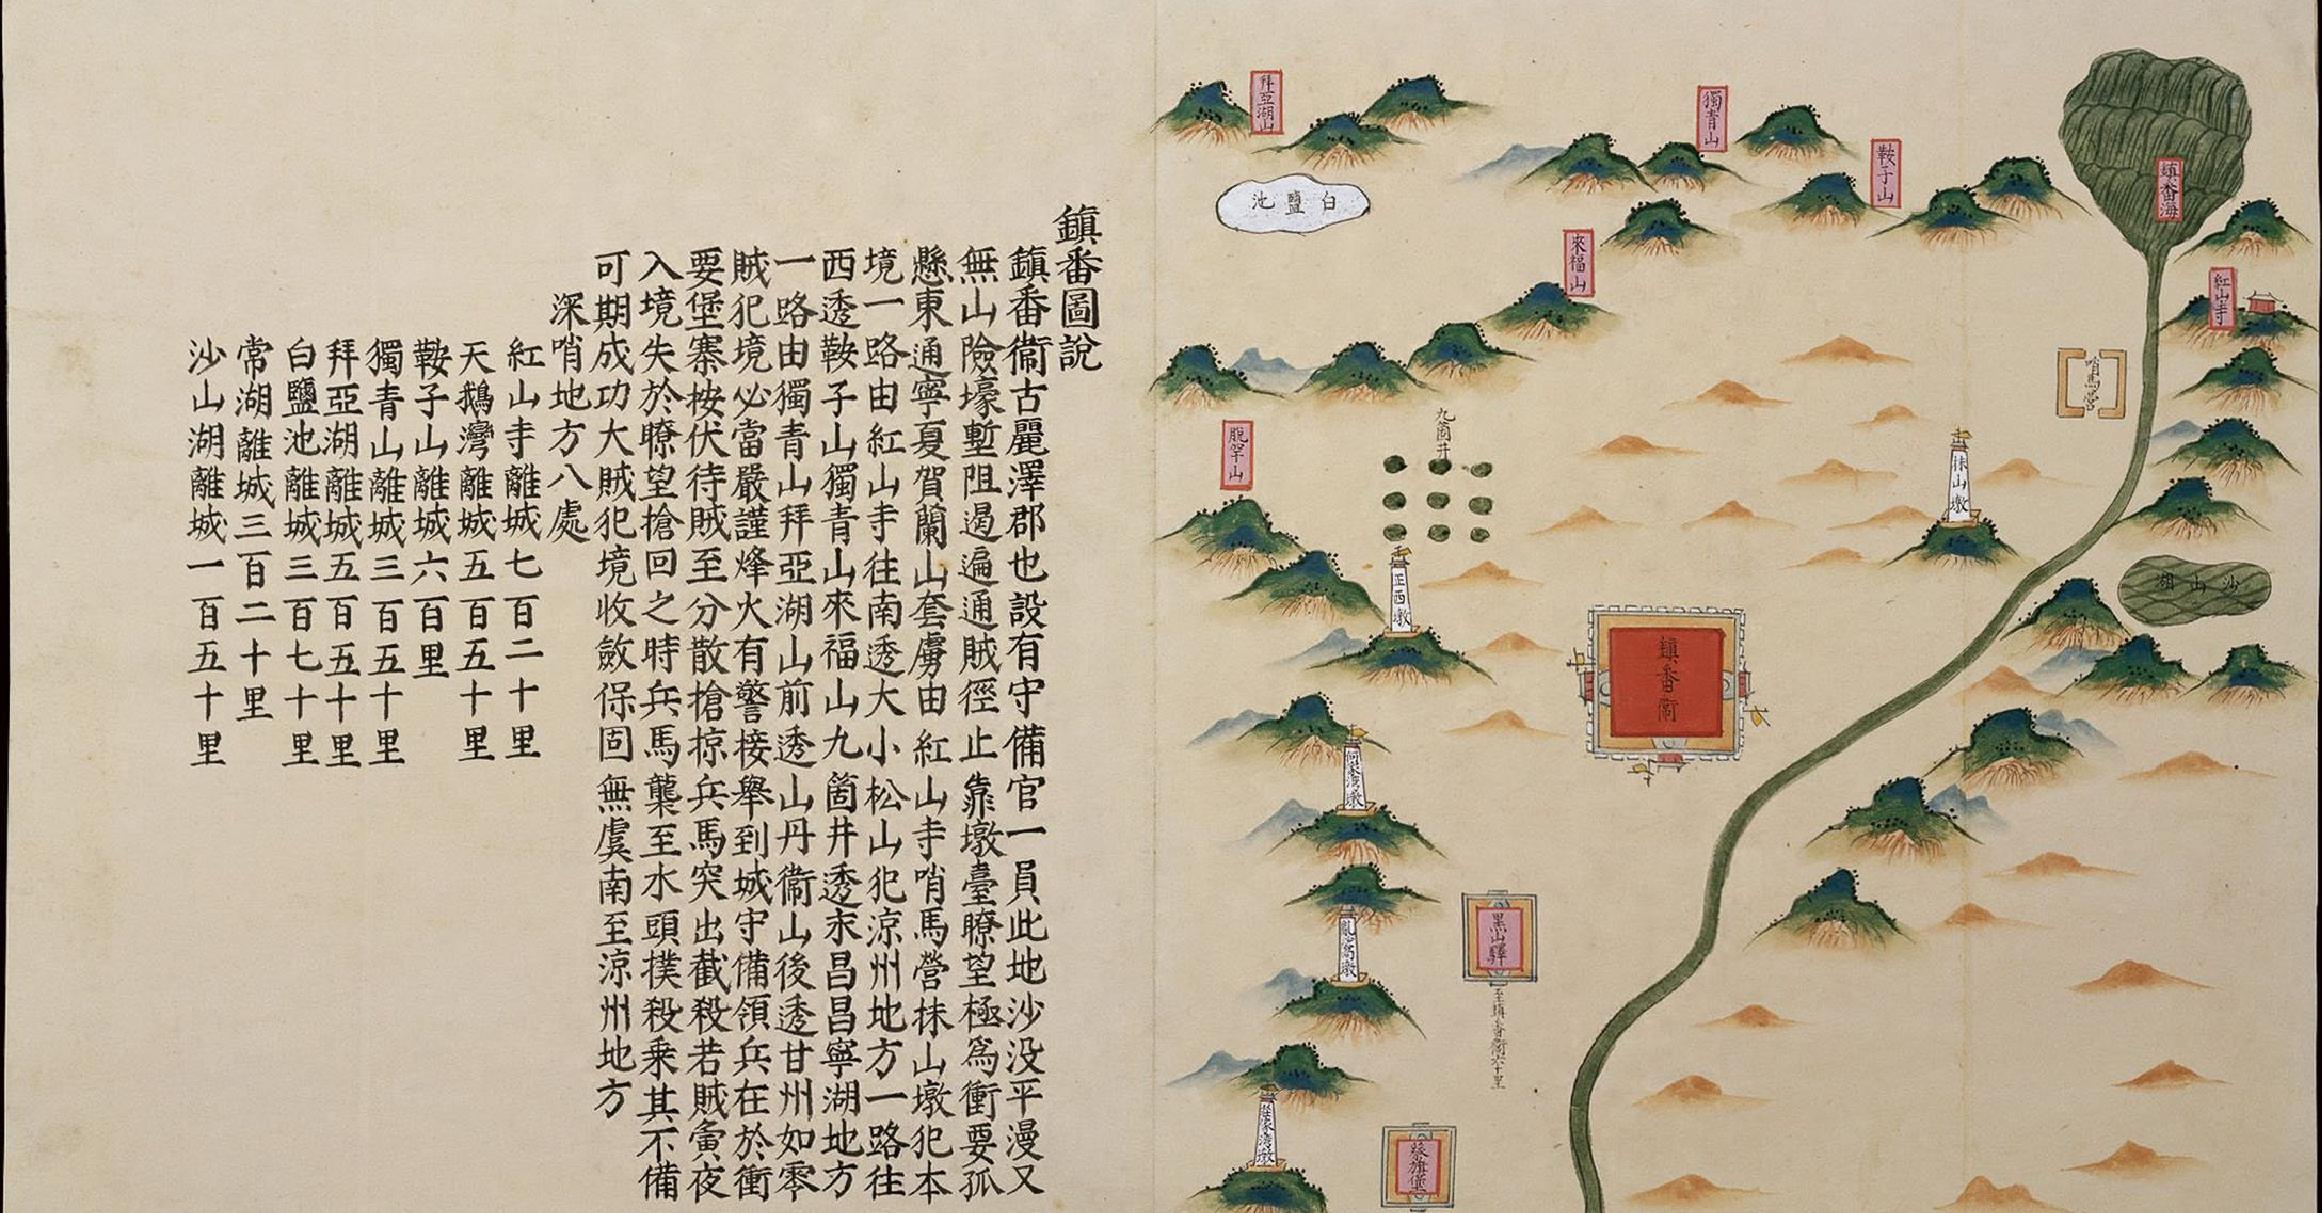 鎮番圖說
鎮番衞古麗澤郡也設有守備官一員此地沙没平漫又
無山險壕塹阻遏遍通賊徑止靠墩臺瞭望極爲衝要孤
懸東通寧夏賀蘭山套虜由紅山寺哨馬營抹山墩犯本
境一路由紅山寺往南透大小松山犯凉州地方一路往
西透鞍子山獨青山來福山九箇井透永昌昌寧湖地方
一路由獨青山拜亞湖山前透山丹衞山後透甘州如零
賊犯境必當嚴謹烽火有警接舉到城守備領兵在於衝
要堡寨按伏待賊至分散搶掠兵馬突出截殺若賊夤夜
入境失於瞭望搶回之時兵馬襲至水頭撲殺乘其不備
可期成功大賊犯境收斂保固無虞南至凉州地方
深哨地方八處
紅山寺離城七百二十里
天鵝灣離城五百五十里
鞍子山離城六百里
獨青山離城三百五十里
拜亞湖離城五百五十里
白鹽池離城三百七十里
常湖離城三百二十里
沙山湖離城一百五十里
鎮番海
紅山寺
哨馬營
沙山湖
抹山墩
鞍子山
獨青山
來福山
拜亞湖山
白鹽池
九箇井
脫罕山
正西墩
鎮番衞
黑山驛
至鎮番衞六十里
亂窩墩
蔡旗堡